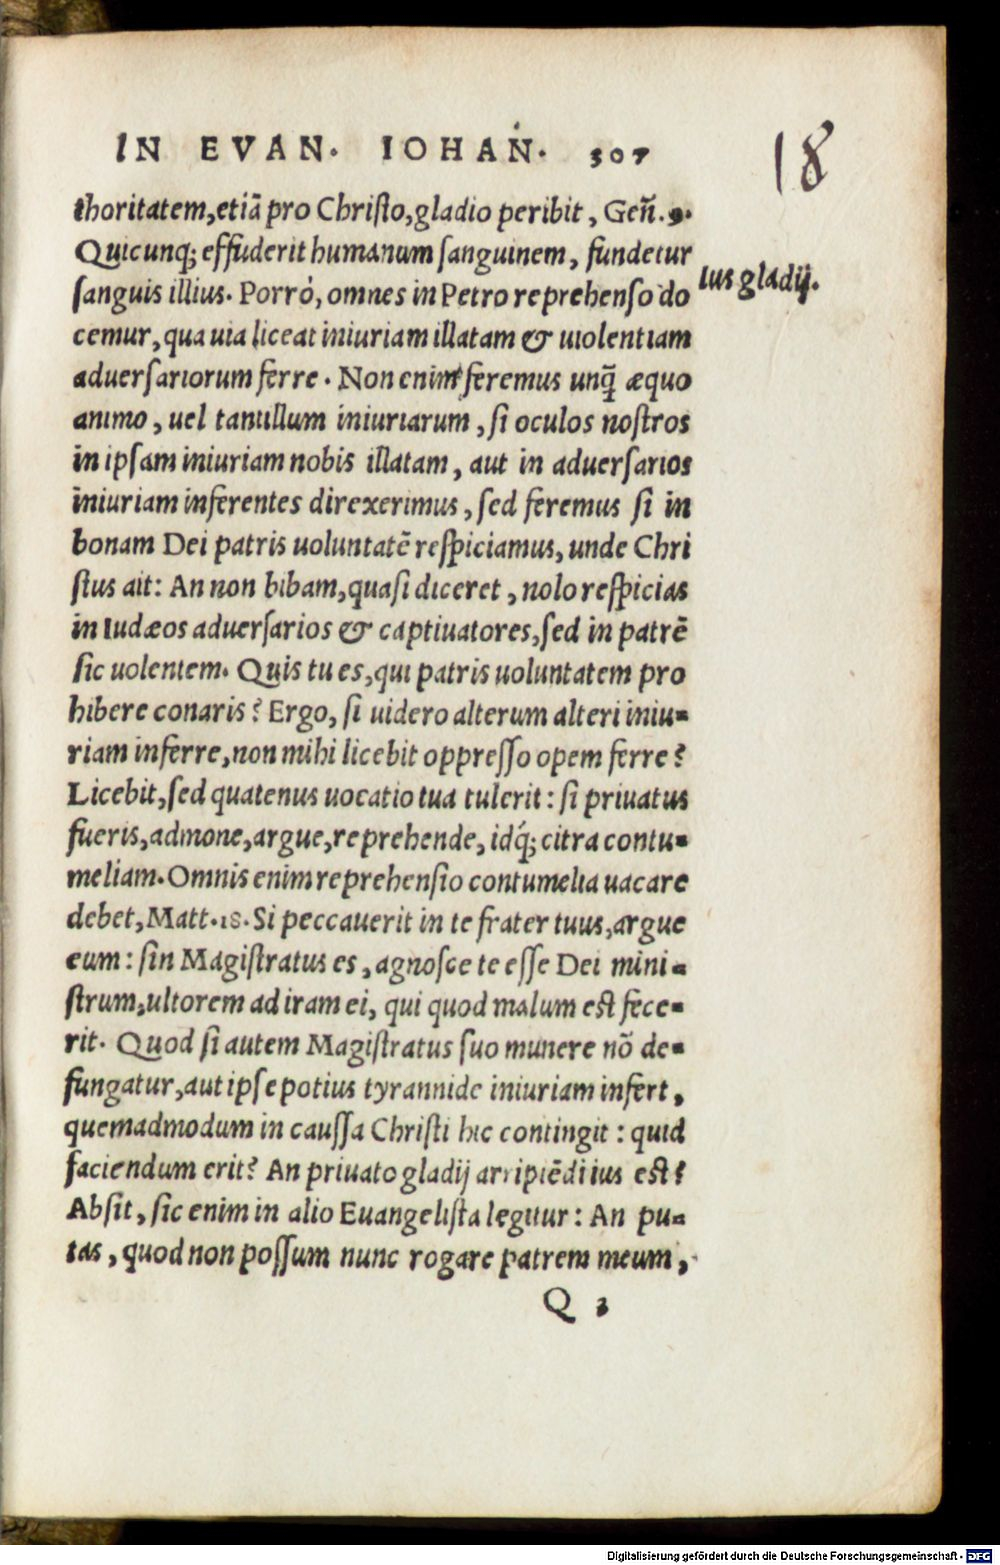 IN EVAN. IOHAN. 307
18
thoritatem, etiā pro Christo, gladio peribit, Geñ. 9.
Quicunq; effuderit humanum sanguinem, fundetur
sanguis illius. Porrò, omnes in Petro reprehenso do
Ius gladij.
cemur, qua uia liceat iniuriam illatam & uiolentiam
aduersariorum ferre. Non enim feremus unq̄ æquo
animo, uel tantillum iniuriarum, si oculos nostros
in ipsam iniuriam nobis illatam, aut in aduersarios
iniuriam inferentes direxerimus, sed feremus si in
bonam Dei patris uoluntatē respiciamus, unde Chri
stus ait: An non bibam, quasi diceret, nolo respicias
in Iudæos aduersarios & captiuatores, sed in patrē
sic uolentem. Quis tu es, qui patris uoluntatem pro
hibere conaris? Ergo, si uidero alterum alteri iniu-
riam inferre, non mihi licebit oppresso opem ferre?
Licebit, sed quatenus uocatio tua tulerit: si priuatus
fueris, admone, argue, reprehende, idq́; citra contu-
meliam. Omnis enim reprehensio contumelia uacare
debet, Matt. 18. Si peccauerit in te frater tuus, argue
eum: sin Magistratus es, agnosce te esse Dei mini-
strum, ultorem ad iram ei, qui quod malum est fece-
rit. Quod si autem Magistratus suo munere nō de-
fungatur, aut ipse potius tyrannide iniuriam infert,
quemadmodum in caussa Christi hic contingit: quid
faciendum erit? An priuato gladij arripiēdi ius est?
Absit, sic enim in alio Euangelista legitur: An pu-
tas, quod non possum nunc rogare patrem meum,
Q 2
Digitalisierung gefördert durch die Deutsche Forschungsgemeinschaft - DFG